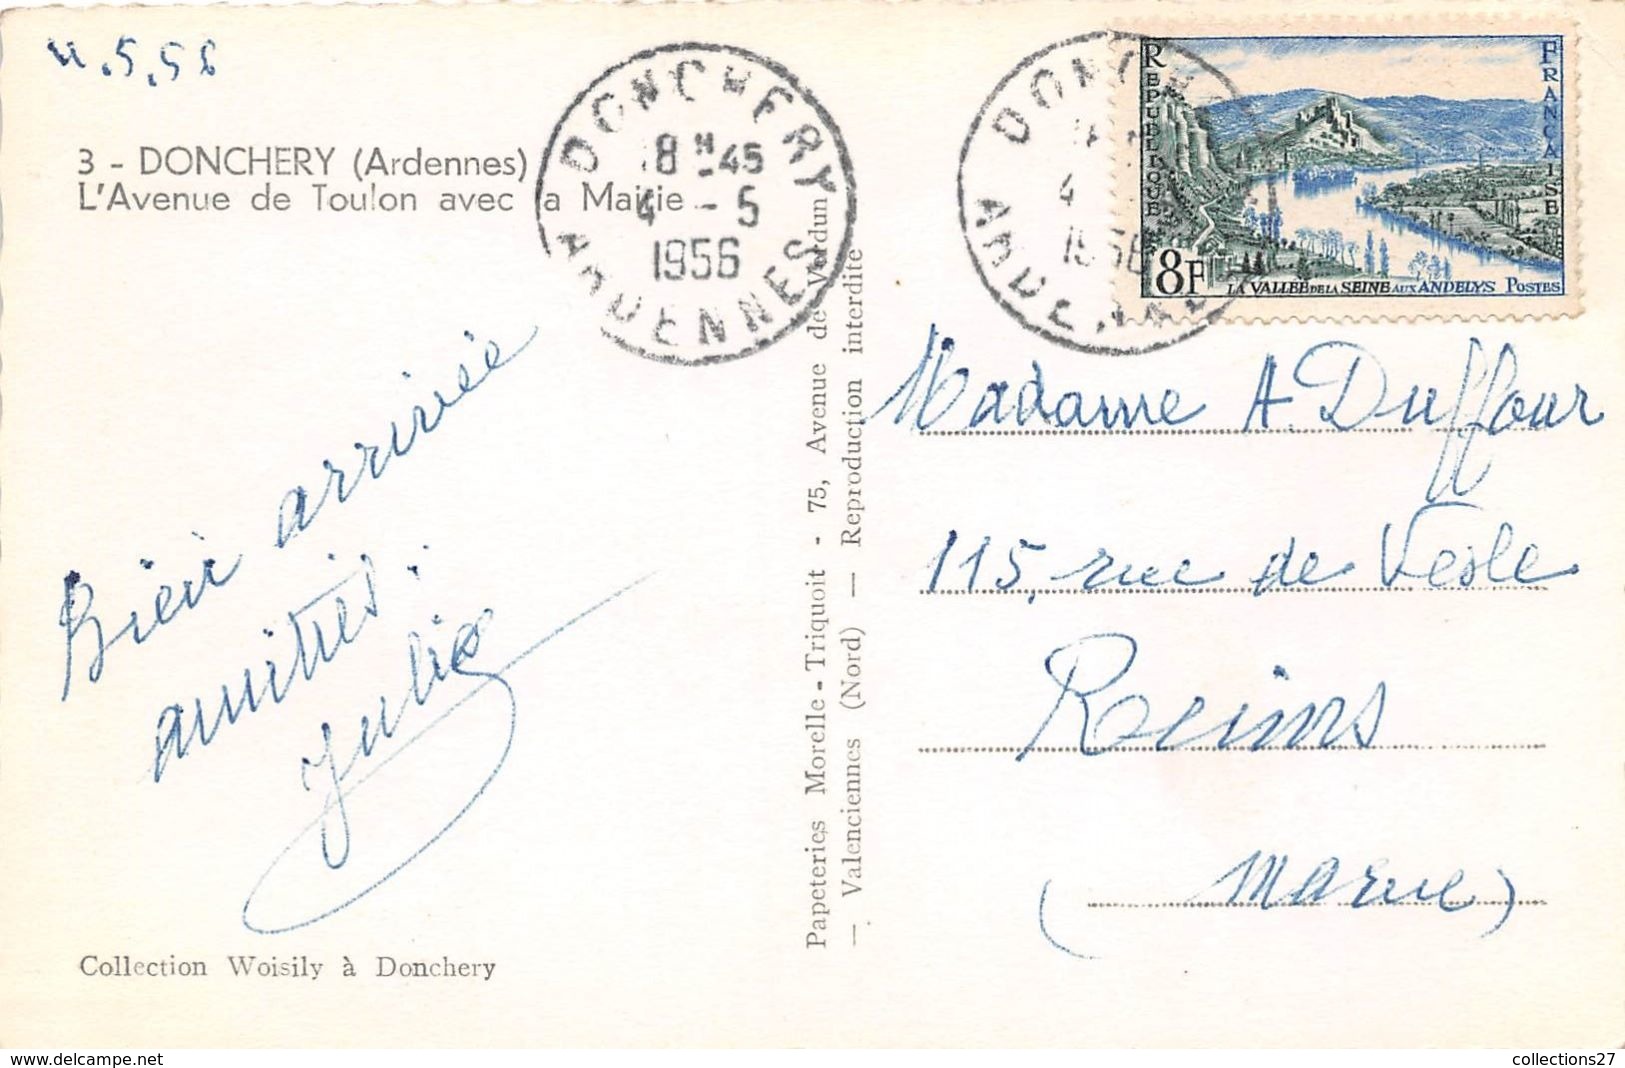 4.5.56
3 - DONCHERY (Ardennes)
L'Avenue de Toulon avec la Mairie
DONCHERY
18 H -45
4 - 5
1956
ARDENNES
Bien arrivée
amitiés.
Julie
Collection Woisily à Donchery
Papeteries Morelle-Triquoit - 75, Avenue de Verdun
— Valenciennes (Nord) — Reproduction interdite
DONCHERY
4
1956
ARDENNES
REPUBLIQUE FRANÇAISE
8F
LA VALLÉE DE LA SEINE AUX ANDELYS POSTES
Madame A. Duffour
115, rue de Vesle
Reims
(Marne)
www.delcampe.net
collections27